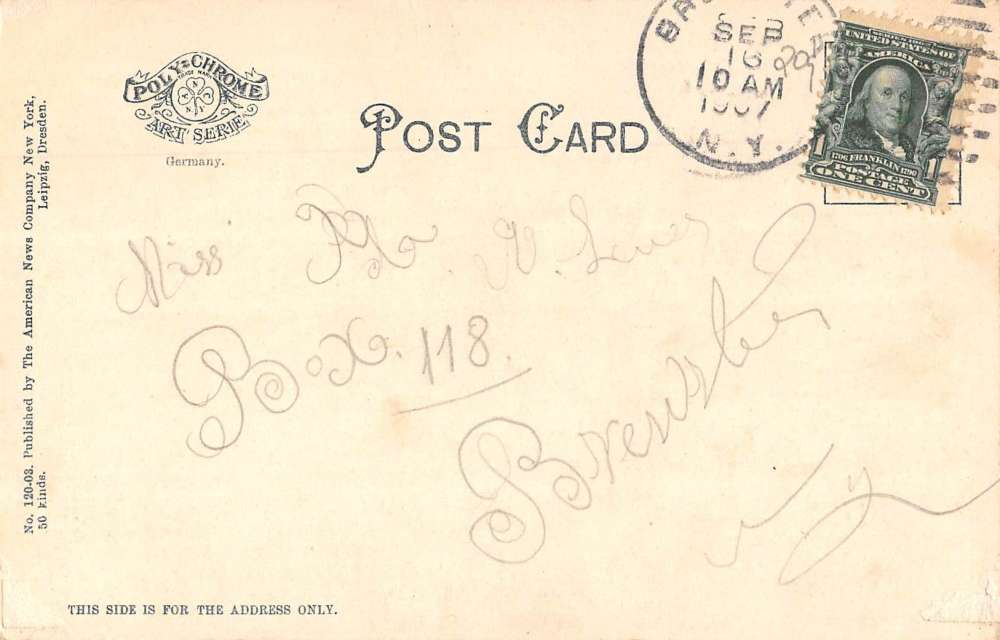 POLY-CHROME
TRADE MARK
ART SERIE
Germany.
POST CARD
SEP
16
10 AM
1907
N.Y.
UNITED STATES OF
AMERICA
1 1
1706 FRANKLIN 1790
POSTAGE
ONE CENT
Miss
Box. 118.
Brewster
N.Y.
No. 120-03. Published by The American News Company New York,
Leipzig, Dresden.
50 kinds.
THIS SIDE IS FOR THE ADDRESS ONLY.